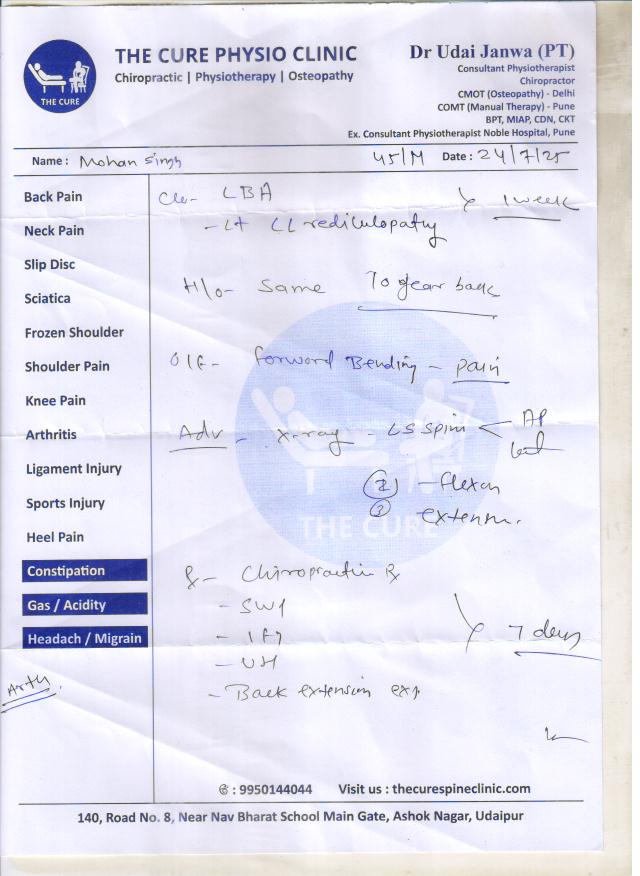 THE CURE PHYSIO CLINIC
Chiropractic | Physiotherapy | Osteopathy
THE CURE
Dr Udai Janwa (PT)
Consultant Physiotherapist
Chiropractor
CMOT (Osteopathy) - Delhi
COMT (Manual Therapy) - Pune
BPT, MIAP, CDN, CKT
Ex. Consultant Physiotherapist Noble Hospital, Pune
Name : Mohan Singh 45/M Date : 24/7/25
Back Pain
Neck Pain
Slip Disc
Sciatica
Frozen Shoulder
Shoulder Pain
Knee Pain
Arthritis
Ligament Injury
Sports Injury
Heel Pain
Constipation
Gas / Acidity
Headach / Migrain
LBA 1 week
- Lt LL rediculopathy
H/o - Same year back
O/E - Forward Bending - pain
Adv - X-ray - LS Spine AP
② - flexon
③ extension.
THE CURE
- Chiropractic
- SWT
- IFT
- 7 days
- Back extension exp
: 9950144044 Visit us : thecurespineclinic.com
140, Road No. 8, Near Nav Bharat School Main Gate, Ashok Nagar, Udaipur